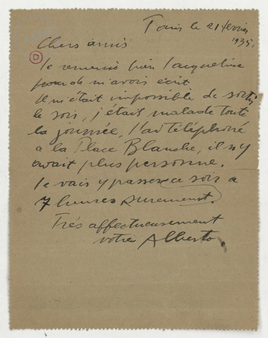 Paris le 21 fevrier
1935.
Chers amis
Je remercie bien Jacqueline
pour m'avois ecrit
Il m'était impossible de sortir
le soir, j'étais malade toute
la journée. J'ai téléphoné
à la Place Blanche, il n'y
avait plus personne.
Je vais y passer ce soir a
7 heures surement.
Très affectueusement
votre Alberto